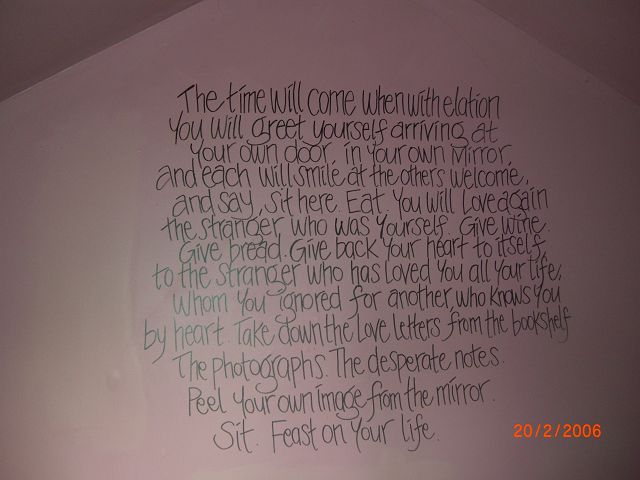 The time will come when with elation
You will greet yourself arriving at
your own door, in your own mirror,
and each will smile at the others welcome,
and say, sit here. Eat. You will love again
the stranger who was yourself. Give wine.
Give bread. Give back your heart to itself,
to the stranger who has loved you all your life,
whom you ignored for another, who knows you
by heart. Take down the love letters from the bookshelf
The photographs. The desperate notes.
Peel your own image from the mirror.
Sit. Feast on your life.
20/2/2006